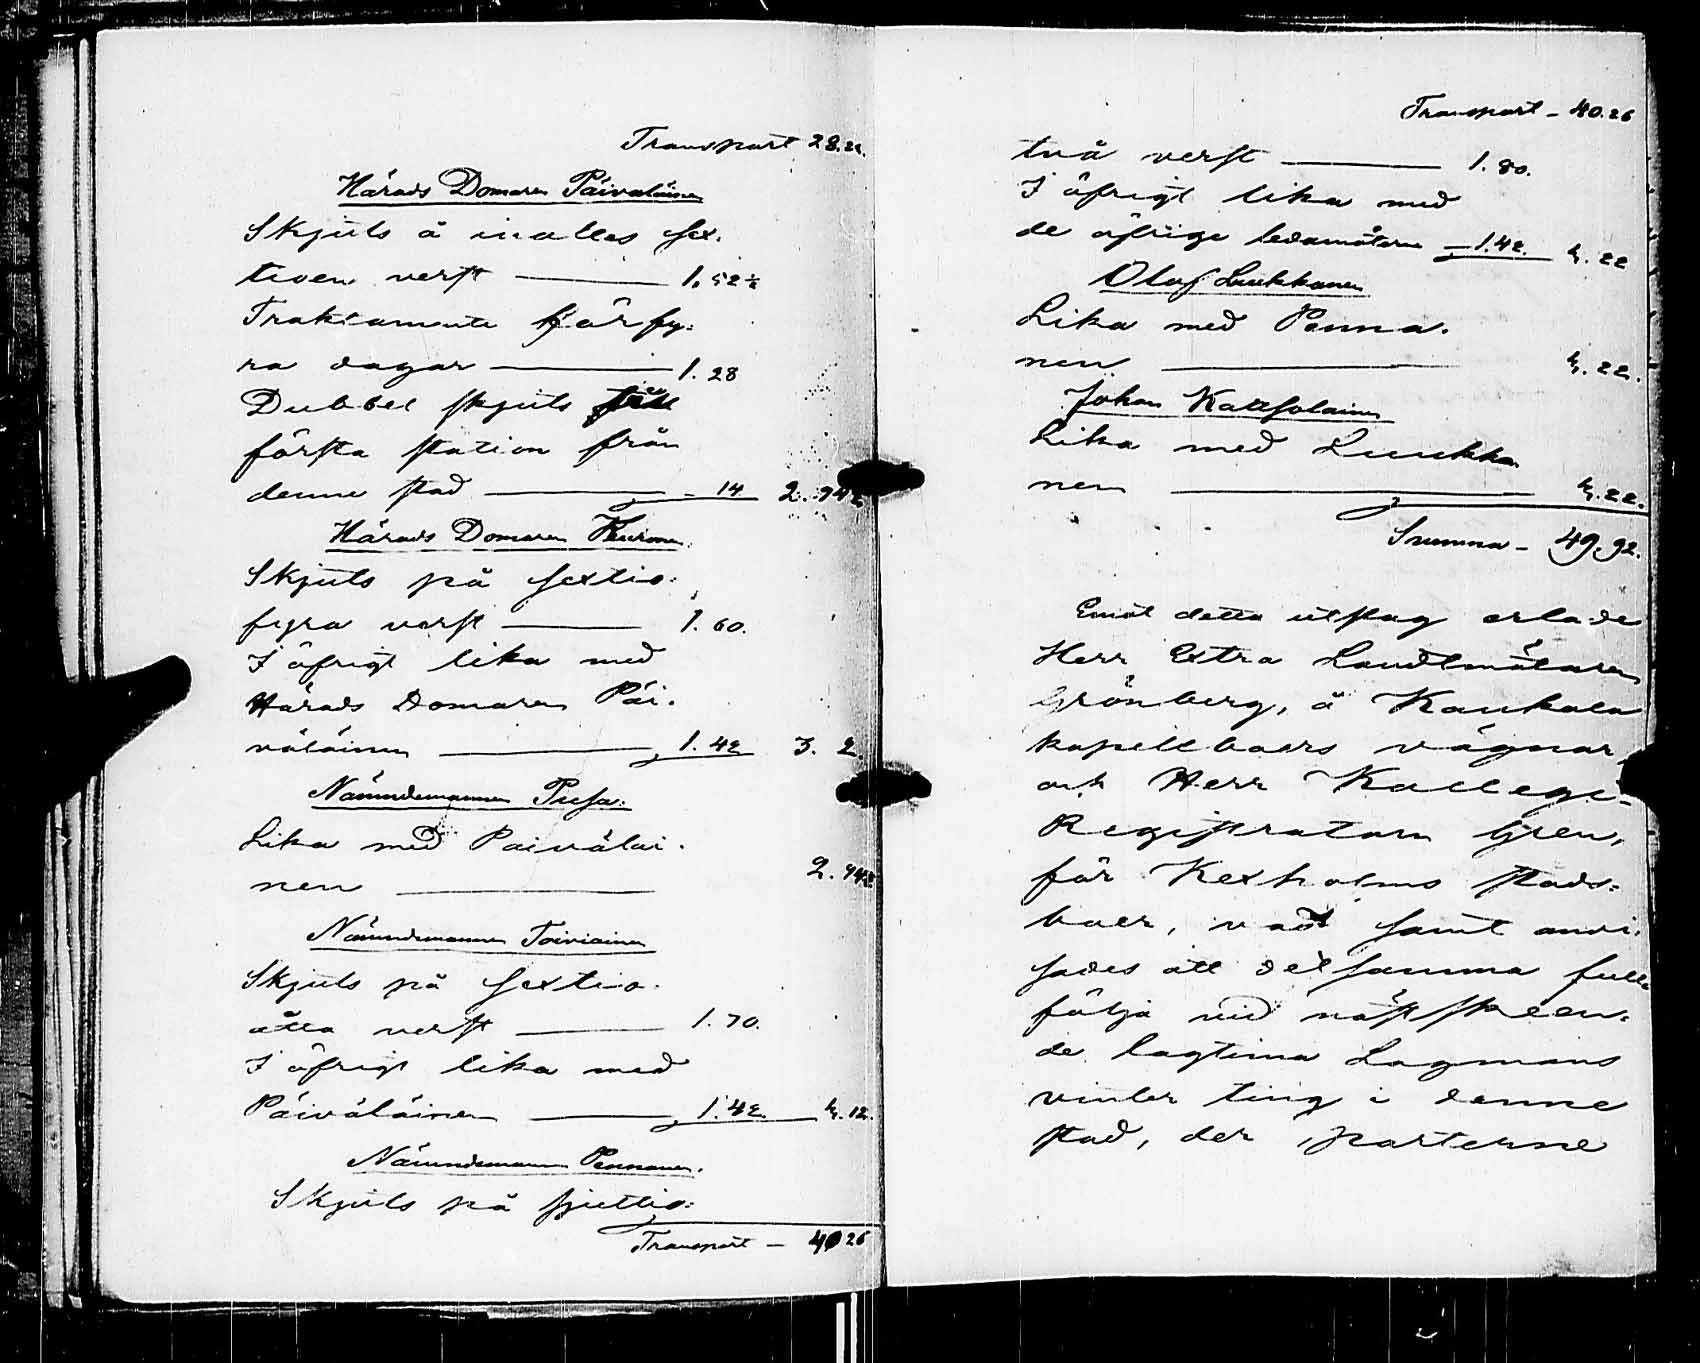 Transport 28.2
Härads Domaren Päiväläinen
Skjuts å inalles sex-
tioen verst — 1.52½
Traktamente för fy-
ra dagar — 1.28
Dubbel skjuts till
första station från
denne stad — - 14 2. 94½
Härads Domaren Kuronen.
Skjuts på sextio-
fyra verst — 1. 60.
I öfrigt lika med
Härads Domaren Päi-
väläinen — 1. 42 3. 2
Nämndemannen Pusa.
Lika med Paivälai-
nen — 2. 94½
Nämndemannen Toiviainen
Skjuts på sextio-
åtta verst — 1. 70.
I öfrigt lika med
Päiväläinen — 1. 42. 3. 12.
Nämndemannen Pennanen.
Skjuts på sjuttio-
Transport — 40 26
Transport - 40.26
två verst — 1. 80.
I öfrigt lika med
de öfrige ledamöterne — 1.42. 3. 22
Olof Luukkanen
Lika med Penna-
nen — 3. 22.
Johan Kaussolainen
Lika med Luukka-
nen — 3. 22.
Summa - 49. 92.
Emot detta utslag erlade
Herr Extra Landtmätaren
Grönberg, å Kaukola
kapellboers vägnar,
och Herr Kollegi-
Registratorn Gren,
för Kexholms stads-
boer, vad samt anvi-
sades att detsamma full-
följa vid nästskeen-
de lagtima Lagmans
vinter ting i denne
stad, der parterne